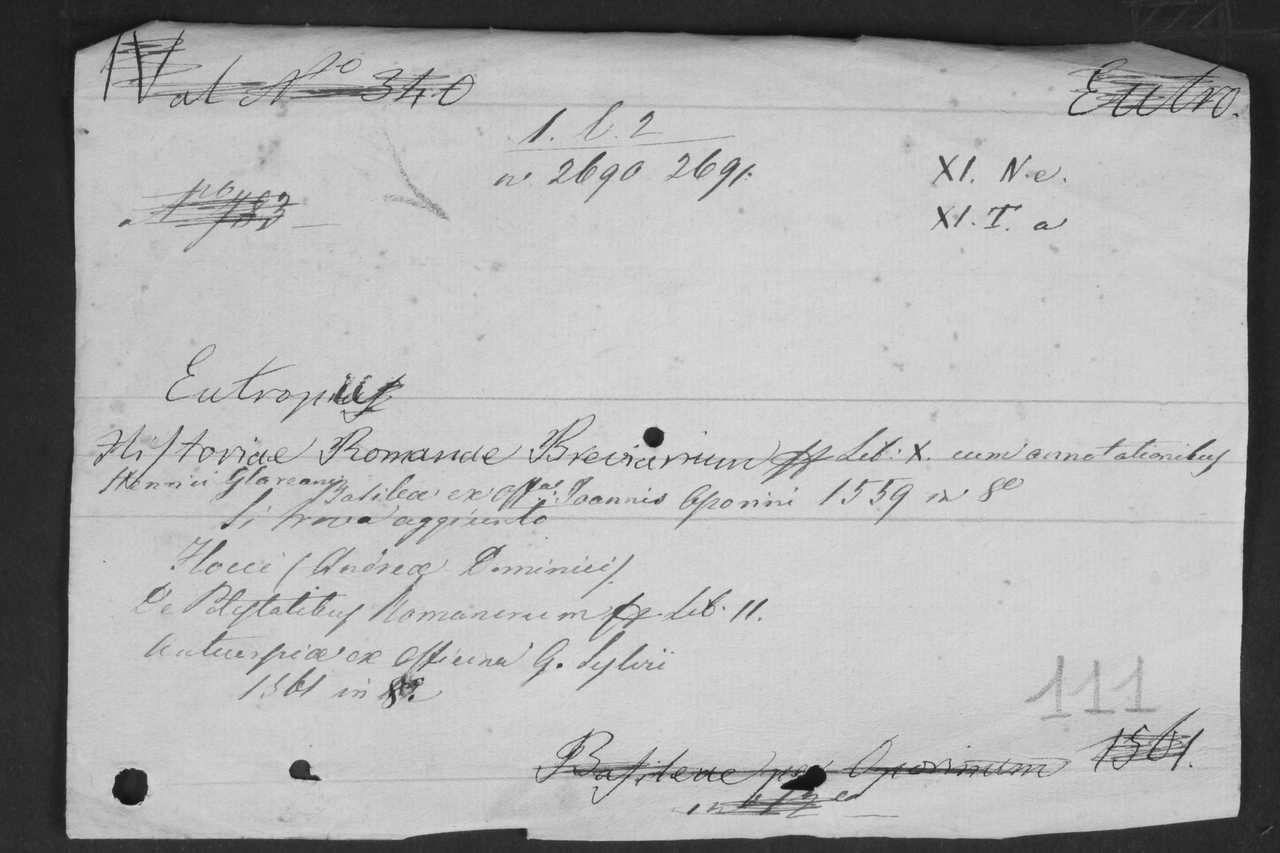 Val N.ro 340
Eutro.
1. C. 2
n 2690 2691.
XI. N. e.
XI. T. a
Eutropius
Historiae Romanae Breviarium Lib: X. cum annotationibus
Henrici Glareani Basileæ ex offna Joannis Oporini 1559 in 8o
Si trova aggiunto
Flocci (Andreæ Dominici)
De Potestatibus Romanorum Lib. II.
Antuerpiæ ex officina G. Sylvii
1561 in 8o
111
Basileae per Oporinum 1561.